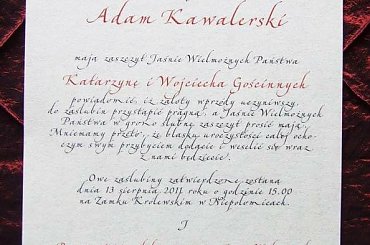 Adam Kawalerski
mają zaszczyt Jaśnie Wielmożnych Państwa
Katarzynę i Wojciecha Gościnnych
powiadomić, iż zaloty wprzódy uczyniwszy,
do zaślubin przystąpić pragną, a Jaśnie Wielmożnych
Państwa w grono ślubne zaszczyt prosić mają.
Mniemamy przeto, że blasku uroczystości całej ocho-
czym swym przybyciem dodacie i weselić się wraz
z nami będziecie.
Owe zaślubiny zatwierdzone zostaną
dnia 13 sierpnia 2011 roku o godzinie 15.00
na Zamku Królewskim w Niepołomicach.
J